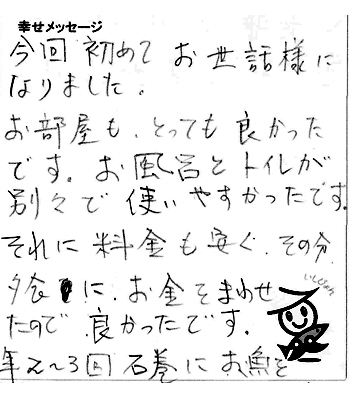 幸せメッセージ
今回初めてお世話様に
なりました。
お部屋も、とっても良かった
です。お風呂とトイレが
別々で使いやすかったです。
それに料金も安く、その分、
夕食に、お金をまわせ
たので良かったです。
いしぴょん
年2〜3回石巻にお魚を